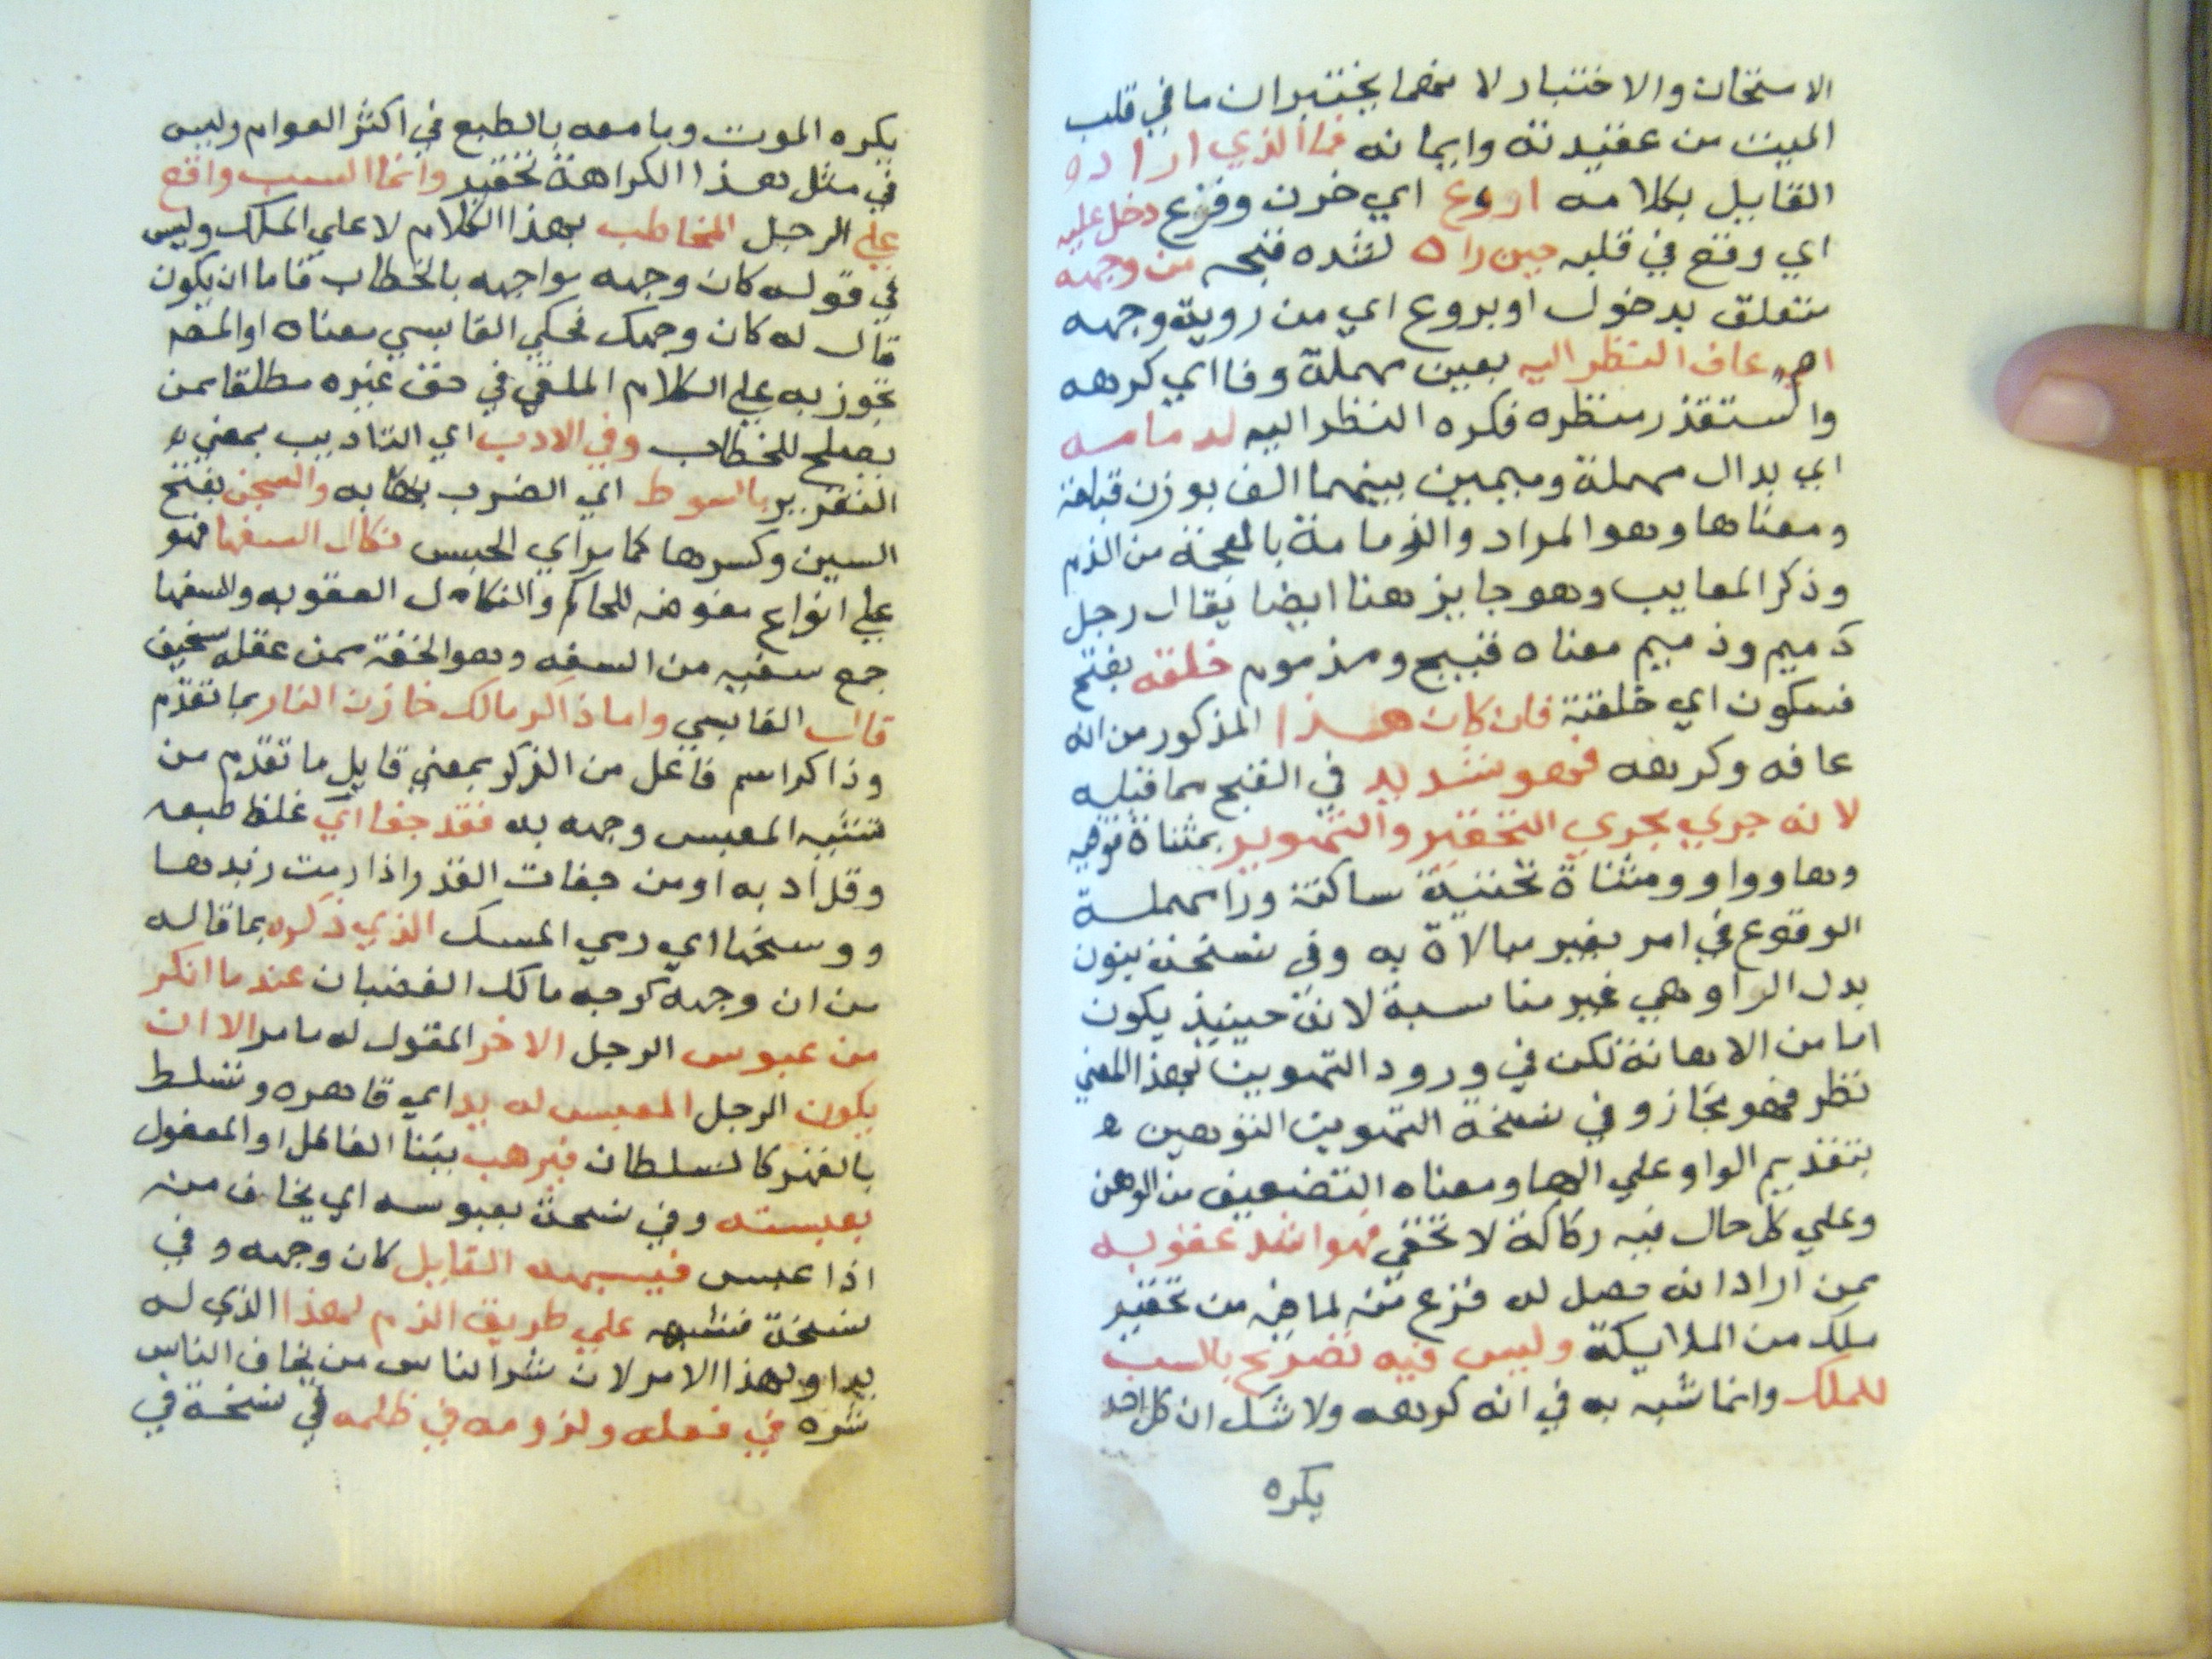 الامتحان والاختبار لا نهما يختبران ما في قلب
الميت من عقيدته وايمانه فما الذي اراده
القايل بكلامه اروع اي خرن وفزع دخل عليه
اي وقع في قلبه حين راه لشده قبحه من وجهه
متعلق بدخول او بروع اي من روية وجهه
ام عاف النظر اليه بعين مهملة وفا اي كرهه
واستقذر منظره فكره النظر اليه لدمامه
اي بدال مهملة وميمين بينهما الف بوزن قباحة
ومعناها وهو المراد والذمامة بالمعجمة من الذم
وذكر المعايب وهو جايز هنا ايضا يقال رجل
دميم وذميم معناه قبيح ومذموم خلقه بفتح
فسكون اي خلقته فان كان هذا المذكور من انه
عافه وكرهه فهو شديد في القبح مما قبله
لانه جري مجري التحقير والتهوير بمثناة فوقيه
وها وواو ومثناة تحتية ساكنة ورا مهملة
الوقوع في امر بغير مبالاة به وفي نسخة بنون
بدل الرا وهي غير مناسبة لانه حينيذ يكون
اما من الاهانة لكن في ورود التهوين بهذا المعني
نظر فهو مجاز وفي نسخة التهوين التوهين
بتقديم الواو علي الها ومعناه التضعيف من الوهن
وعلي كل حال فيه ركاكة لا تخفي فهو اشد عقوبه
ممن اراد انه حصل له فزع منه لما فيه من تحقير
ملك من الملايكة وليس فيه تصريح بالسب
للملك وانما شبه به في انه كرهه ولا شك ان كل احد
يكره
يكره الموت وما معه بالطبع في اكثر العوام وليس
في مثل هذا الكراهة تحقير وانما السب واقع
علي الرجل المخاطب بهذا الكلام لا علي الملك وليس
في قوله كان وجهه مواجهه بالخطاب فاما ان يكون
قال له كان وجهك فحكي القابسي معناه او المصـ
تجوز به علي الكلام الملقي في حق غيره مطلقا ممن
يصلح للخطاب وفي الادب اي التاديب بمعني
التعزير بالسوط اي الضرب بنكابه والسجن بفتح
السين وكسرها كما مر اي الحبس نكال السفها فهو
علي انواع مفوضه للحاكم والنكال العقوبه والسفها
جمع سفيه من السفه وهو الخفة ممن عقله سخيف
قال القابسي واما ذاكر مالك خازن النار بما تقدم
وذاكر اسم فاعل من الذكر بمعني قايل ما تقدم من
تشبيه المعبس وجهه به فقد جفا اي غلظ طبعه
وقل ادبه او من جفات القدر اذا رمت زبدها
ووسخها اي رمي المسك الذي ذكره بما قاله
من ان وجهه كوجه مالك الغضبان عند ما انكر
من عبوس الرجل الاخر المقول له ما مر الا ان
يكون الرجل المعبس له يد اي قاهره وتسلط
بالقهر كالسلطان فيرهب ببنا الفاعل او المفعول
بعبسته وفي نسخة بعبوسه اي يخاف منه
اذا عبس فيسبهه القايل كان وجهه وفي
نسخة فشبهه علي طريق الذم لهذا الذي له
يد او لهذا الامر لان شر الناس من يخاف الناس
شره في فعله ولزومه في ظلمه في نسخة في